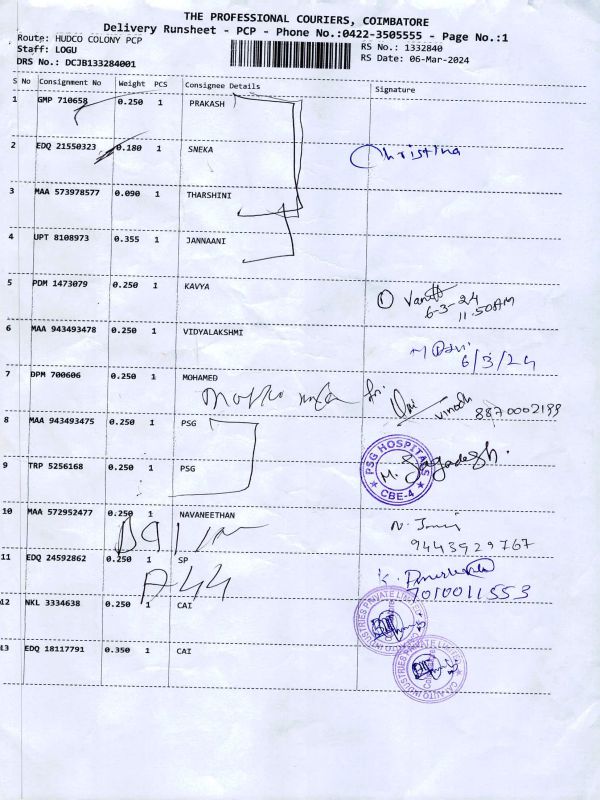 THE PROFESSIONAL COURIERS, COIMBATORE
Delivery Runsheet - PCP - Phone No.:0422-3505555 - Page No.:1
Route: HUDCO COLONY PCP
RS No.: 1332840
Staff: LOGU
RS Date: 06-Mar-2024
DRS No.: DCJB133284001
S No Consignment No Weight PCS Consignee Details Signature
1 GMP 710658 0.250 1 PRAKASH
2 EDQ 21550323 0.180 1 SNEKA Christina
3 MAA 573978577 0.090 1 THARSHINI
4 UPT 8108973 0.355 1 JANNAANI
5 PDM 1473079 0.250 1 KAVYA
6-3-24
11.50AM
6 MAA 943493478 0.250 1 VIDYALAKSHMI
6/3/24
7 DPM 700606 0.250 1 MOHAMED
vinoth 8870002199
8 MAA 943493475 0.250 1 PSG
PSG HOSPITALS
M. Jagadesh.
9 TRP 5256168 0.250 1 PSG
CBE-4
10 MAA 572952477 0.250 1 NAVANEETHAN
9443929767
11 EDQ 24592862 0.250 1 SP
A44
7010011553
12 NKL 3334638 0.250 1 CAI
13 EDQ 18117791 0.350 1 CAI
CAI AUTO INDUSTRIES PRIVATE LIMITED